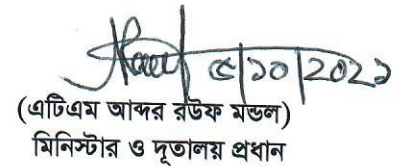 ৫/১০/২০২১
(এটিএম আব্দর রউফ মন্ডল)
মিনিস্টার ও দূতালয় প্রধান